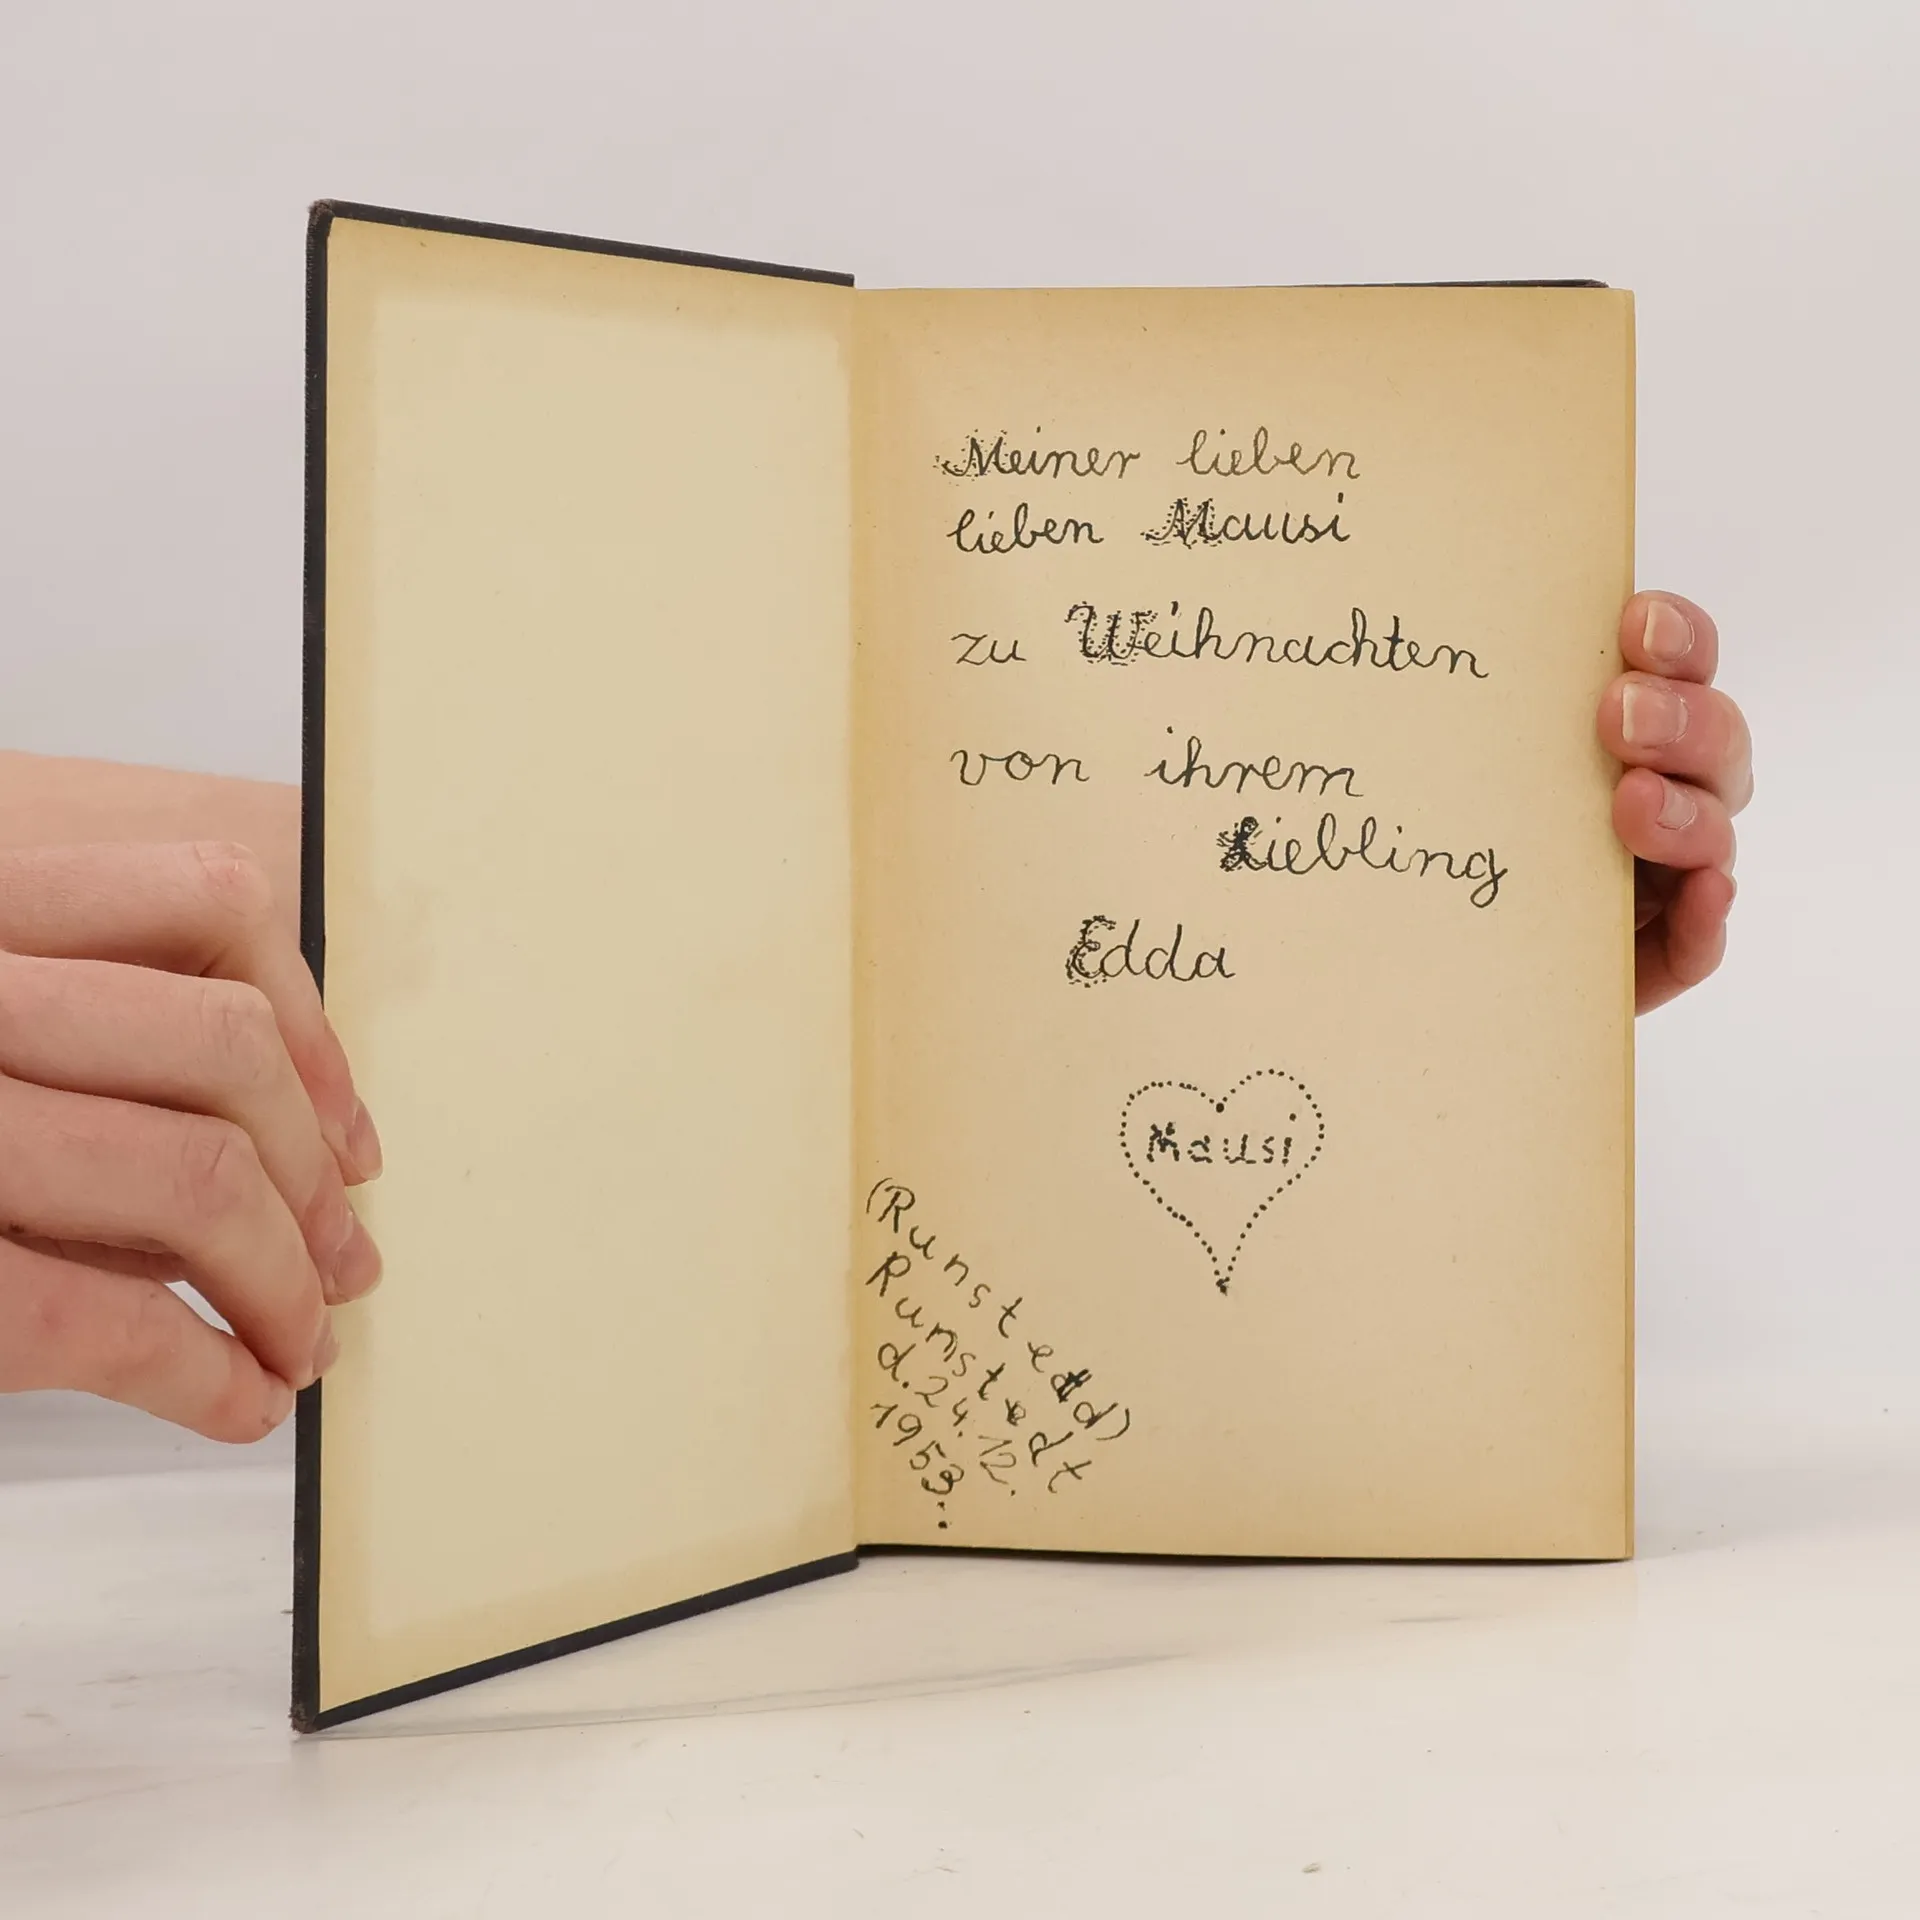 Meiner lieben
lieben Mausi
zu Weihnachten
von ihrem
Liebling
Edda
Mausi
(Runstedtd)
Runstedt
d. 24. 12.
1953..